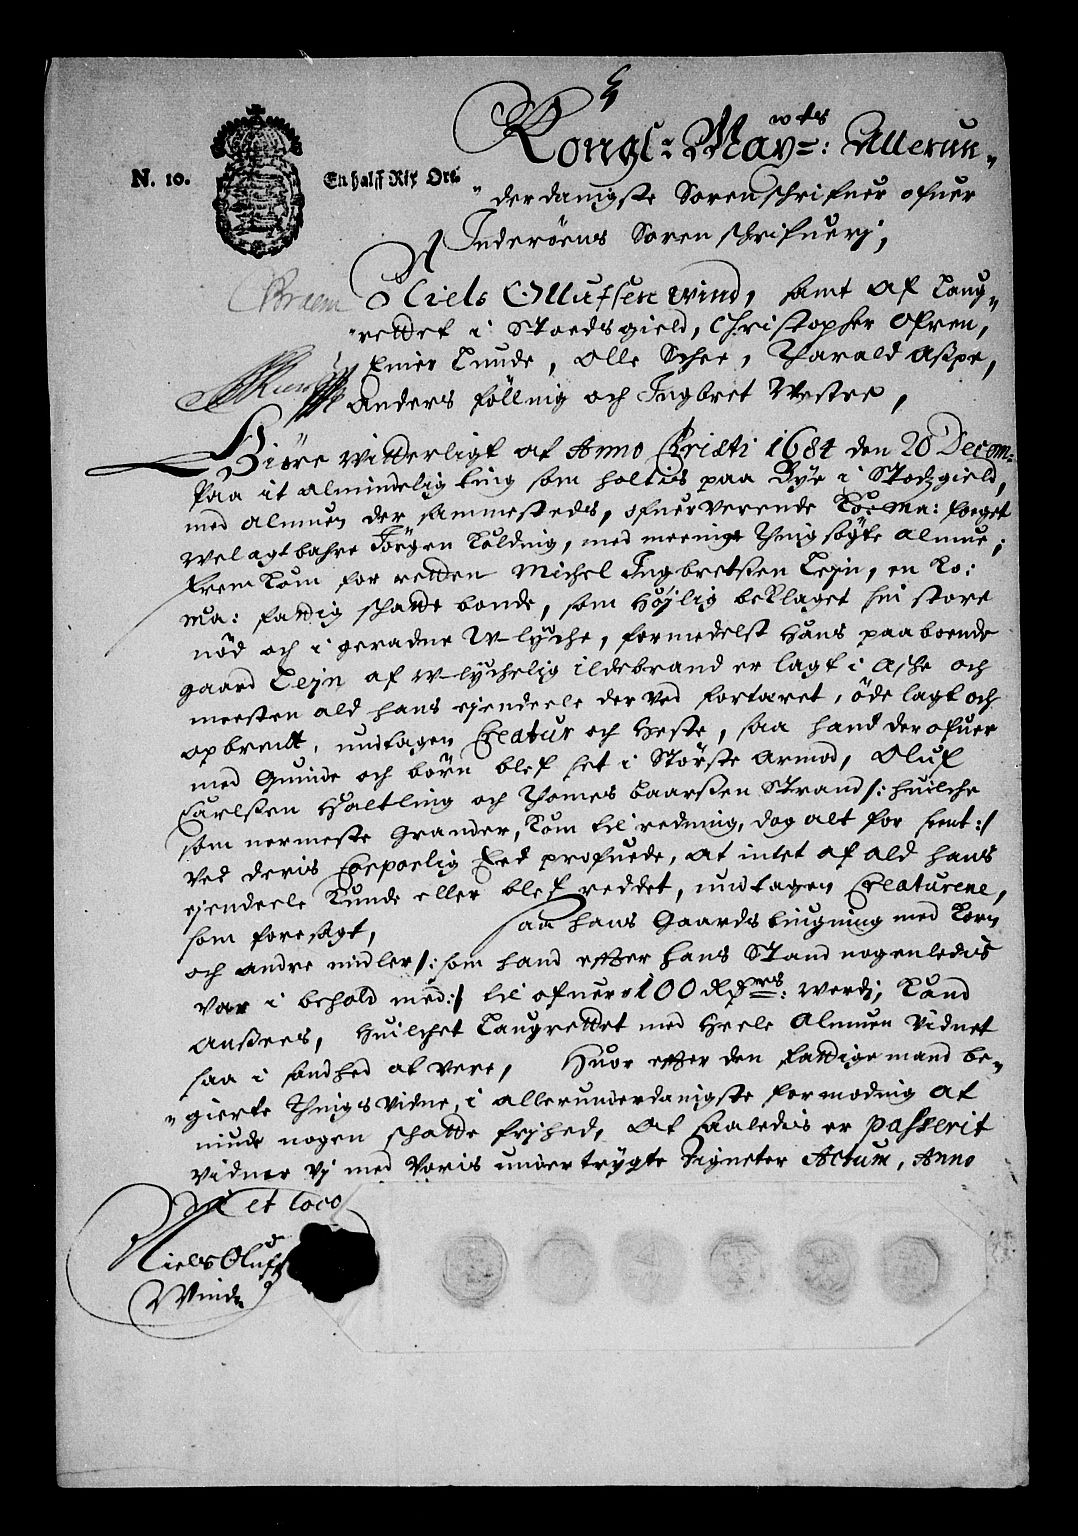 Kongl: May:tts Allerun-
N. 10. En halff Rix Ort.
derdanigste Sorenschrifuer ofuer
Inderöens Sorenschrifueri,
Niels Olluffsen Wind, samt af Laug-
rettet i Stodsgield, Christopher Ofren,
Einer Lunde, Olle Schee, Harald Aspe,
Anders Föllnig och Ingbret Westre,
Giöre witterligt at Anno Cristi 1684 den 20 Decem:
Paa it almindelig ting som holtes paa Bye i Stodzgield,
med almuen der sammesteds, ofuerverende Ko: Ma: foeget
welagtbahre Jörgen Kolding, med meenige thingsögte almue;
frem kom for retten Michel Ingbretsen Lein, en Ko:
Ma: fattig schatte bonde, som höjlig beklaget sin store
nöd och i geraadne w-lyche, formedelst hans paaboende
gaard Lein af w-lychelig ildebrand er lagt i asche och
meesten ald hans ejendeele derved fortæret, öde lagt och
opbrendt, undtagen Creatur och Heste, saa hand derofuer
med quinde och börn blef set i störste armod, Oluf
Carlsen Hhaltling och Thomes Laarsen Strand /: huilche
som nermeste Grander, kom til redning, dog alt for sent :/
ved deris Corporlig Eed profuede, at intet af ald hans
ejendeele kunde eller blef reddet, undtagen Creaturene,
som foresagt, saa hans Gaards bugning med korn
och andre midler /: som hand effter hans stand nogenledis
var i behold med :/ til ofuer 100 Rdrs: werdj, kand
ansees, Huilchet Laugrettet med heele Almuen vidnet
saa i sandhed at vere, Huor effter den fattige mand be-
gierte thingsvidne, i allerunderdanigste formodnig at
niude nogen schatte frihed, at saaledis er passerit
vidner vj med voris undertrygte Signeter Actum, Anno
et Loco
Niels Olufs
Wind